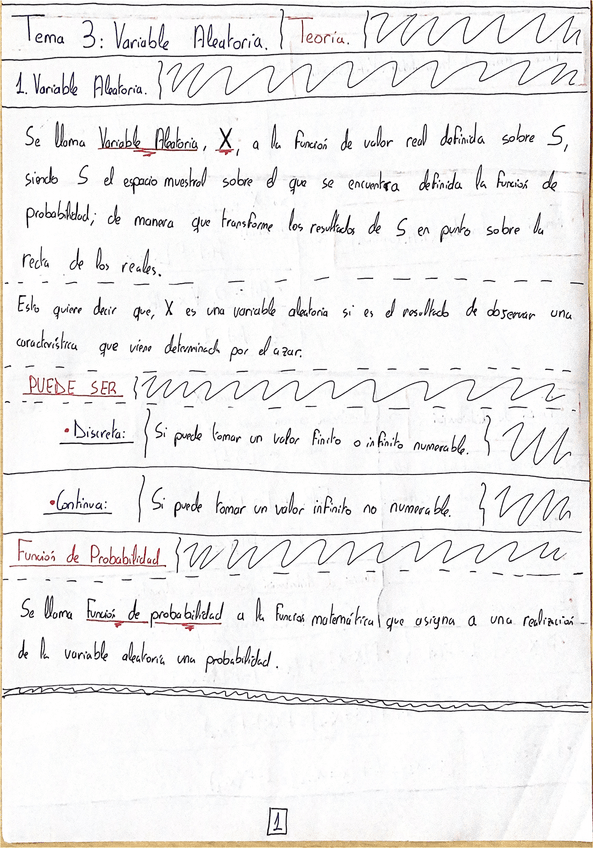 Tema 3: Variable Aleatoria. Teoria.
1. Variable Aleatoria.
Se llama Variable Aleatoria, X, a la función de valor real definida sobre S,
siendo S el espacio muestral sobre el que se encuentra definida la función de
probabilidad; de manera que transforme los resultados de S en punto sobre la
recta de los reales.
Esto quiere decir que, X es una variable aleatoria si es el resultado de observar una
característica que viene determinada por el azar.
PUEDE SER
• Discreta: Si puede tomar un valor finito o infinito numerable.
• Continua: Si puede tomar un valor infinito no numerable.
Función de Probabilidad
Se llama Función de probabilidad a la función matemática que asigna a una realización
de la variable aleatoria una probabilidad.
1